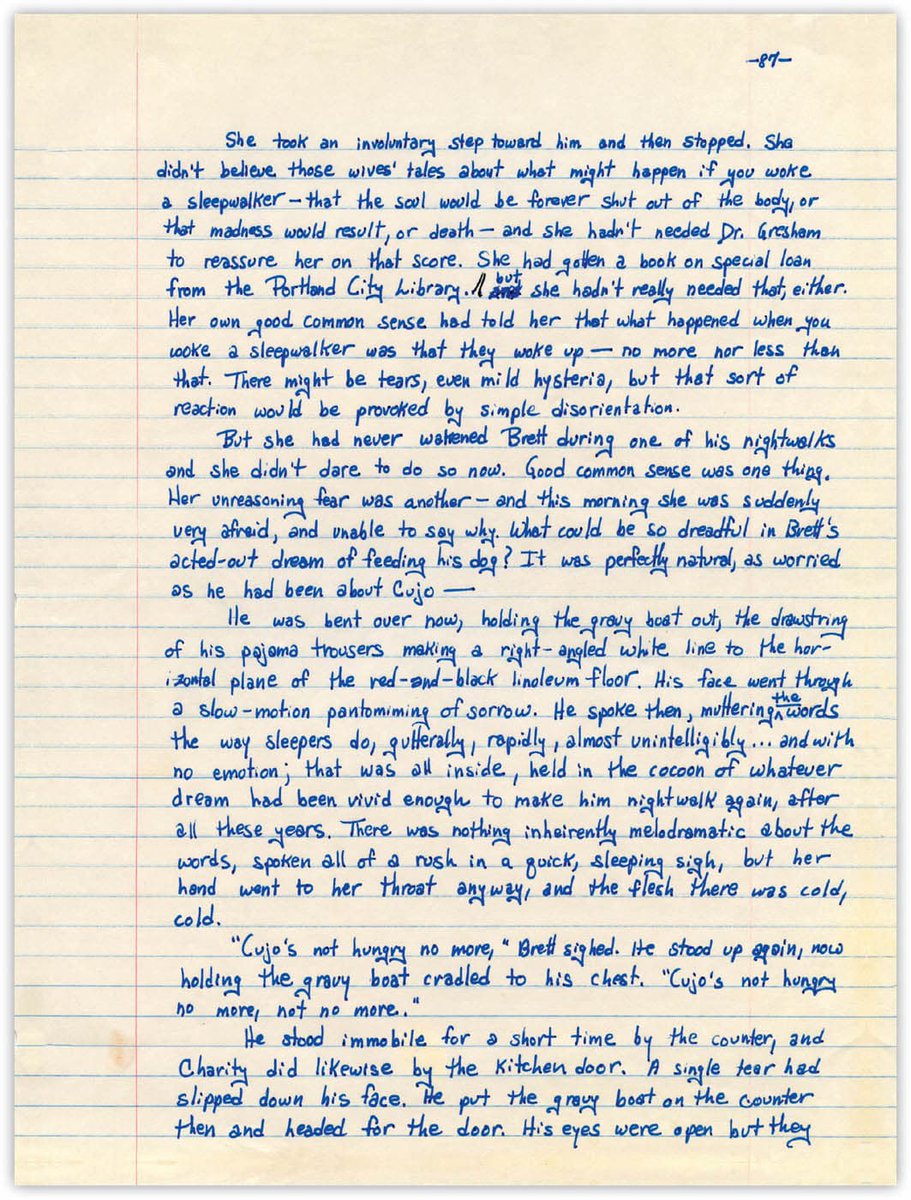 -87-
She took an involuntary step toward him and then stopped. She
didn't believe those wives' tales about what might happen if you woke
a sleepwalker — that the soul would be forever shut out of the body, or
that madness would result, or death — and she hadn't needed Dr. Gresham
to reassure her on that score. She had gotten a book on special loan
from the Portland City Library. but she hadn't really needed that, either.
Her own good common sense had told her that what happened when you
woke a sleepwalker was that they woke up — no more nor less than
that. There might be tears, even mild hysteria, but that sort of
reaction would be provoked by simple disorientation.
But she had never wakened Brett during one of his nightwalks
and she didn't dare to do so now. Good common sense was one thing.
Her unreasoning fear was another — and this morning she was suddenly
very afraid, and unable to say why. What could be so dreadful in Brett's
acted-out dream of feeding his dog? It was perfectly natural, as worried
as he had been about Cujo —
He was bent over now, holding the gravy boat out, the drawstring
of his pajama trousers making a right-angled white line to the hor-
izontal plane of the red-and-black linoleum floor. His face went through
a slow-motion pantomiming of sorrow. He spoke then, muttering the words
the way sleepers do, gutterally, rapidly, almost unintelligibly... and with
no emotion; that was all inside, held in the cocoon of whatever
dream had been vivid enough to make him nightwalk again, after
all these years. There was nothing inheirently melodramatic about the
words, spoken all of a rush in a quick, sleeping sigh, but her
hand went to her throat anyway, and the flesh there was cold,
cold.
"Cujo's not hungry no more," Brett sighed. He stood up again, now
holding the gravy boat cradled to his chest. "Cujo's not hungry
no more, not no more."
He stood immobile for a short time by the counter, and
Charity did likewise by the kitchen door. A single tear had
slipped down his face. He put the gravy boat on the counter
then and headed for the door. His eyes were open but they